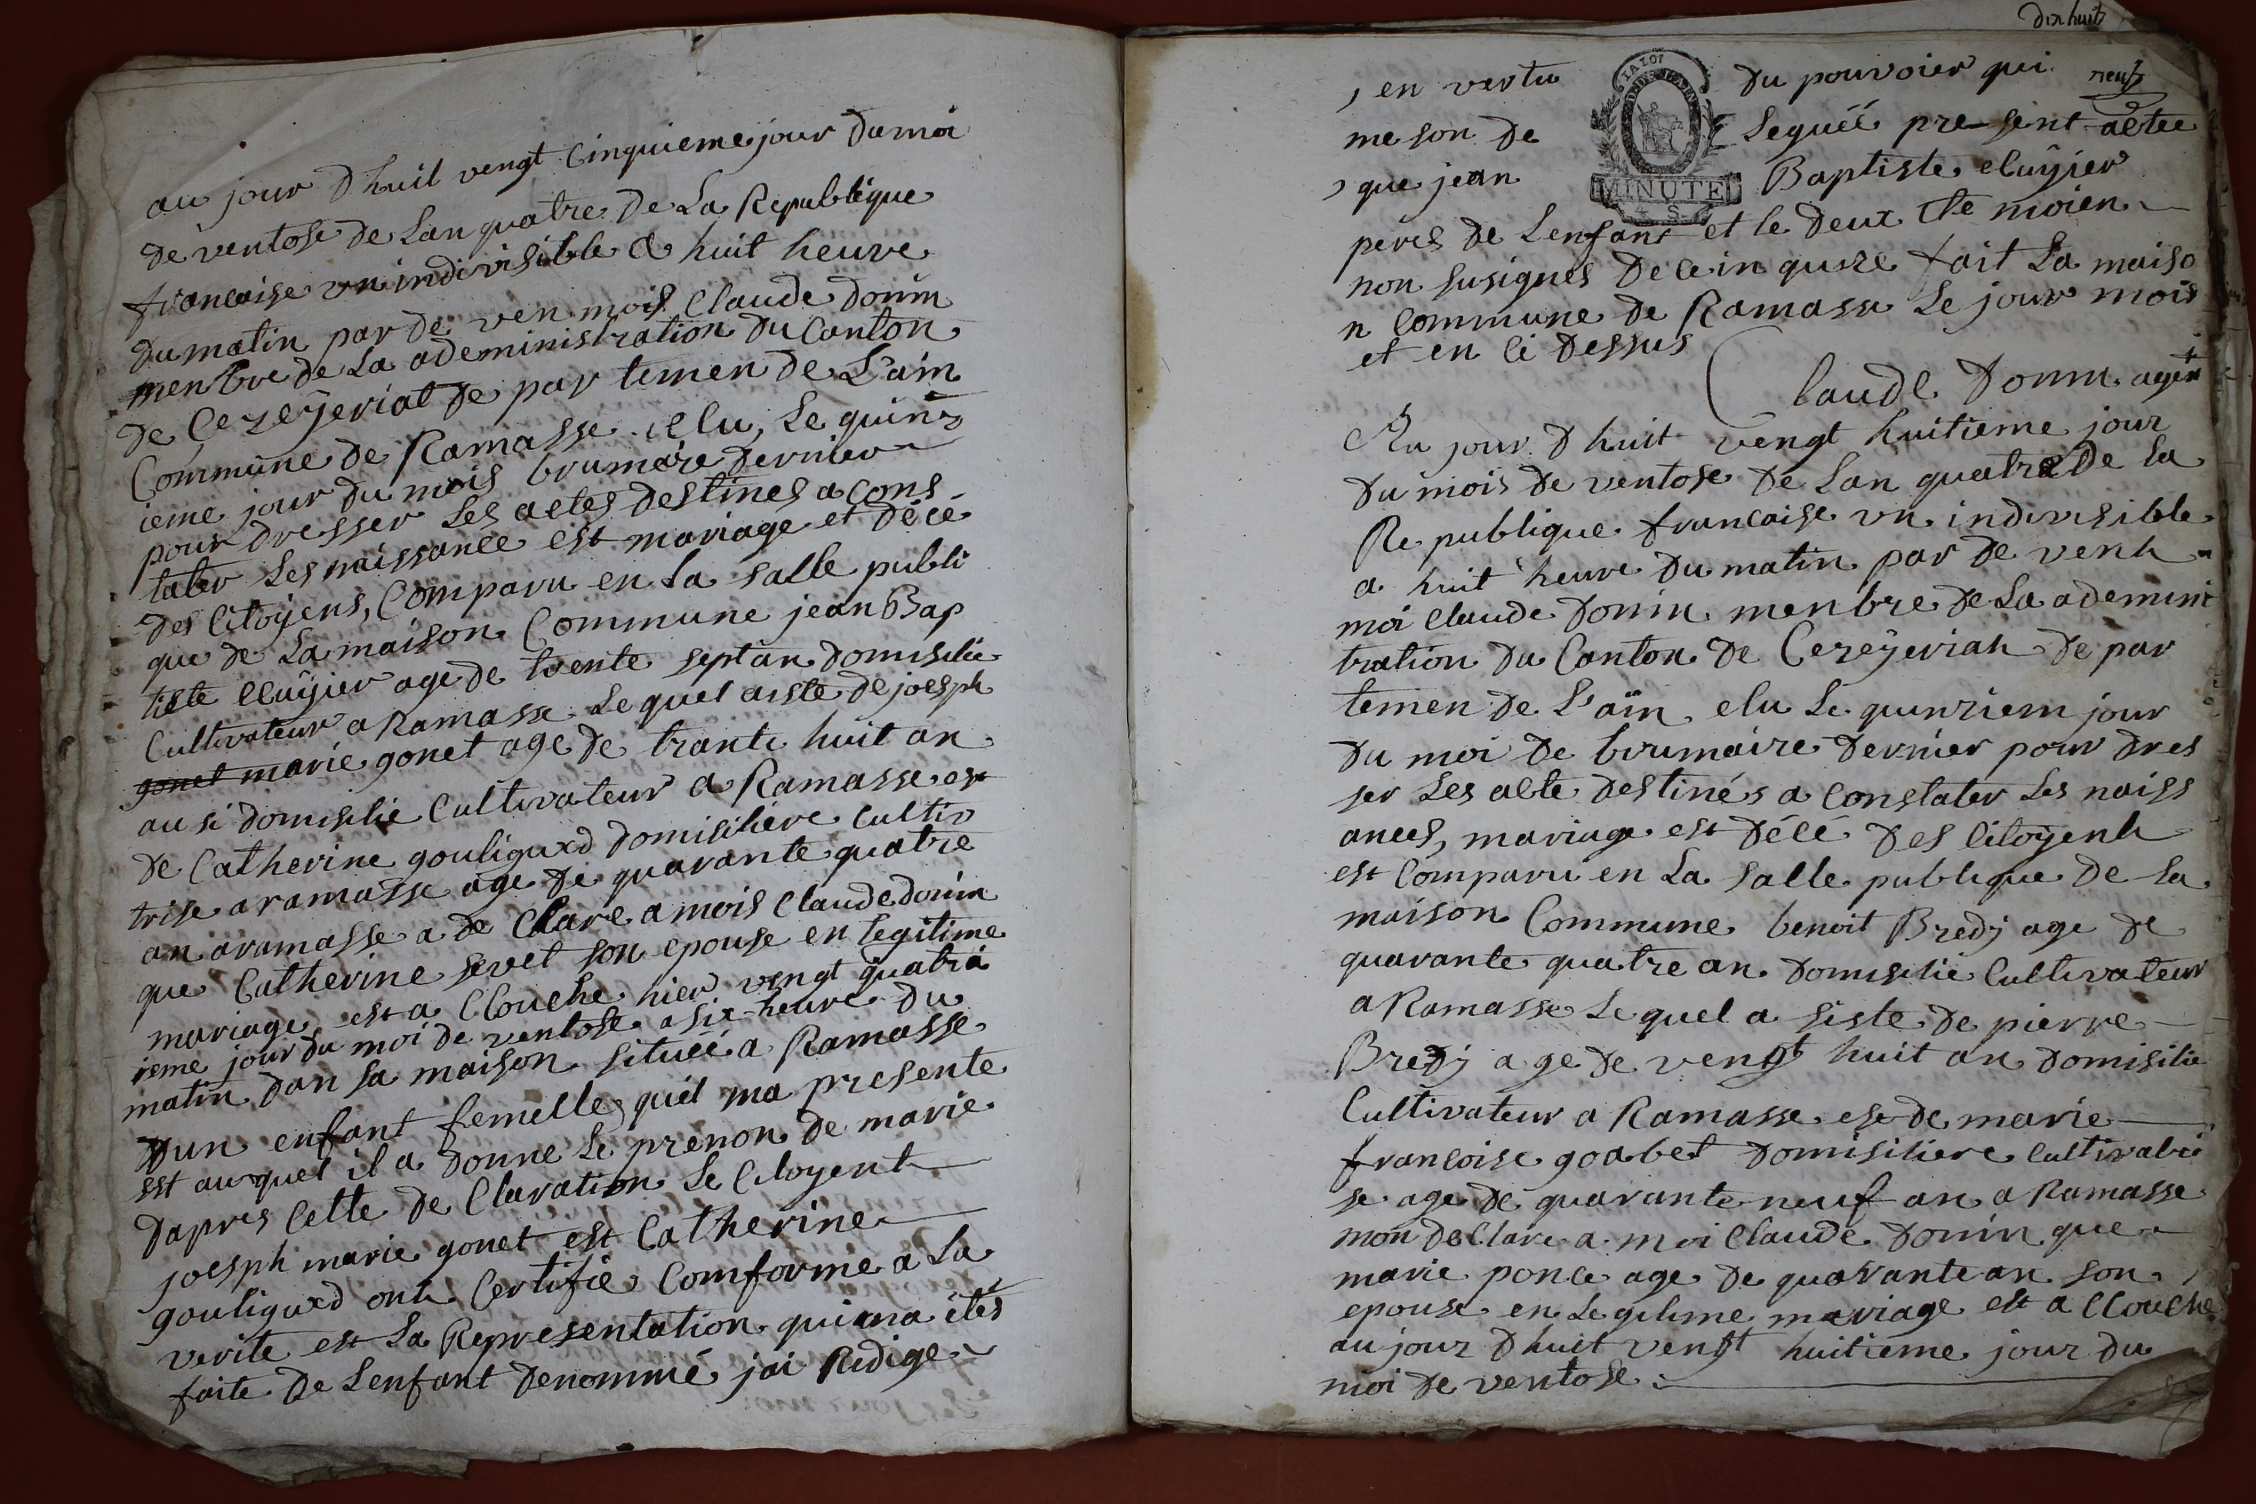 au jour d huit vengt Cinquieme jour du moi
de ventose de Lan quatre de La Republique
francaise un indivisible a huit heure
du matin par de ven mois Claude donin
menbre de La adeministration du Canton
de Cezeÿeriat de par temen de L'ain
Commune de Ramasse elu, Le quinz
ieme jour du mois brumaire dernier
pour dresser Les actes destines a cons
tater Les naissance est mariage et décé
des Citoÿens, Comparu en La salle publi
que de La maison Commune jean Bap
tiste Cluÿier age de trente sept an domisilié
Cultivateur a Ramasse Le quel asiste de joesph
gonet marie gonet age de trante huit an
ausi domisilié Cultivateur a Ramasse est
de Catherine gouligurd domisiliére Cultiv
trise a ramasse age de quarante quatre
an a ramasse a de Clare a mois Claude donin
que Catherine sevet son epouse en Legitime
mariage est a CCouche hier vengt quatri
ieme jour du moi de ventose a six heure du
matin dan sa maison située a Ramasse
dun enfant femelle quil ma presente
est auquel il a donne Le prenon de marie
dapres Cette de Claration Le Citoyent
joesph marie gonet est Catherine
gouligurd ont Certifie Comforme a La
verite est La Representation qui ma étés
faite de Lenfant denommé jai Redige
dix huit
neuf
, en vertu du pouvoier qui
me son de Leguéé pre sent actee
, que jean Baptiste Cluÿier
peres de Lenfant et le deux the moien
non susignes de ce in qusre fait La maiso
n Commune de Ramasse Le jour mois
et en Ci dessus
Claude Donin agent
Au jour d huit vengt huitieme jour
du mois de ventose de Lan quatre de La
Re publique francaise un indivisible
a huit heure du matin par de vent
moi Claude donin menbre de La ademini
tration du Canton de Cezeÿeriat de par
temen de L'ain elu Le quinziem jour
du moi de brumaire dernier pour dres
ser Les acte destinés a Constater Les naiss
ances, mariage est décé des Citoÿent
est Comparu en La salle publique de La
maison Commune benoit Bredÿ age de
quarante quatre an domisilié Cultivateur
a Ramasse Le quel a siste de pierre
Bredÿ a ge de vengt huit an domisilie
Cultivateur a Ramasse est de marie
francoise goabet domisiliere Cultivatri
se age de quarante neuf an a Ramasse
mon de Clare a moi Claude donin que
marie ponce age de quarante an son
epouse en Le gitime mariage est a CCouche
au jour d huit vengt huitieme jour du
moi de ventose
MINUTE